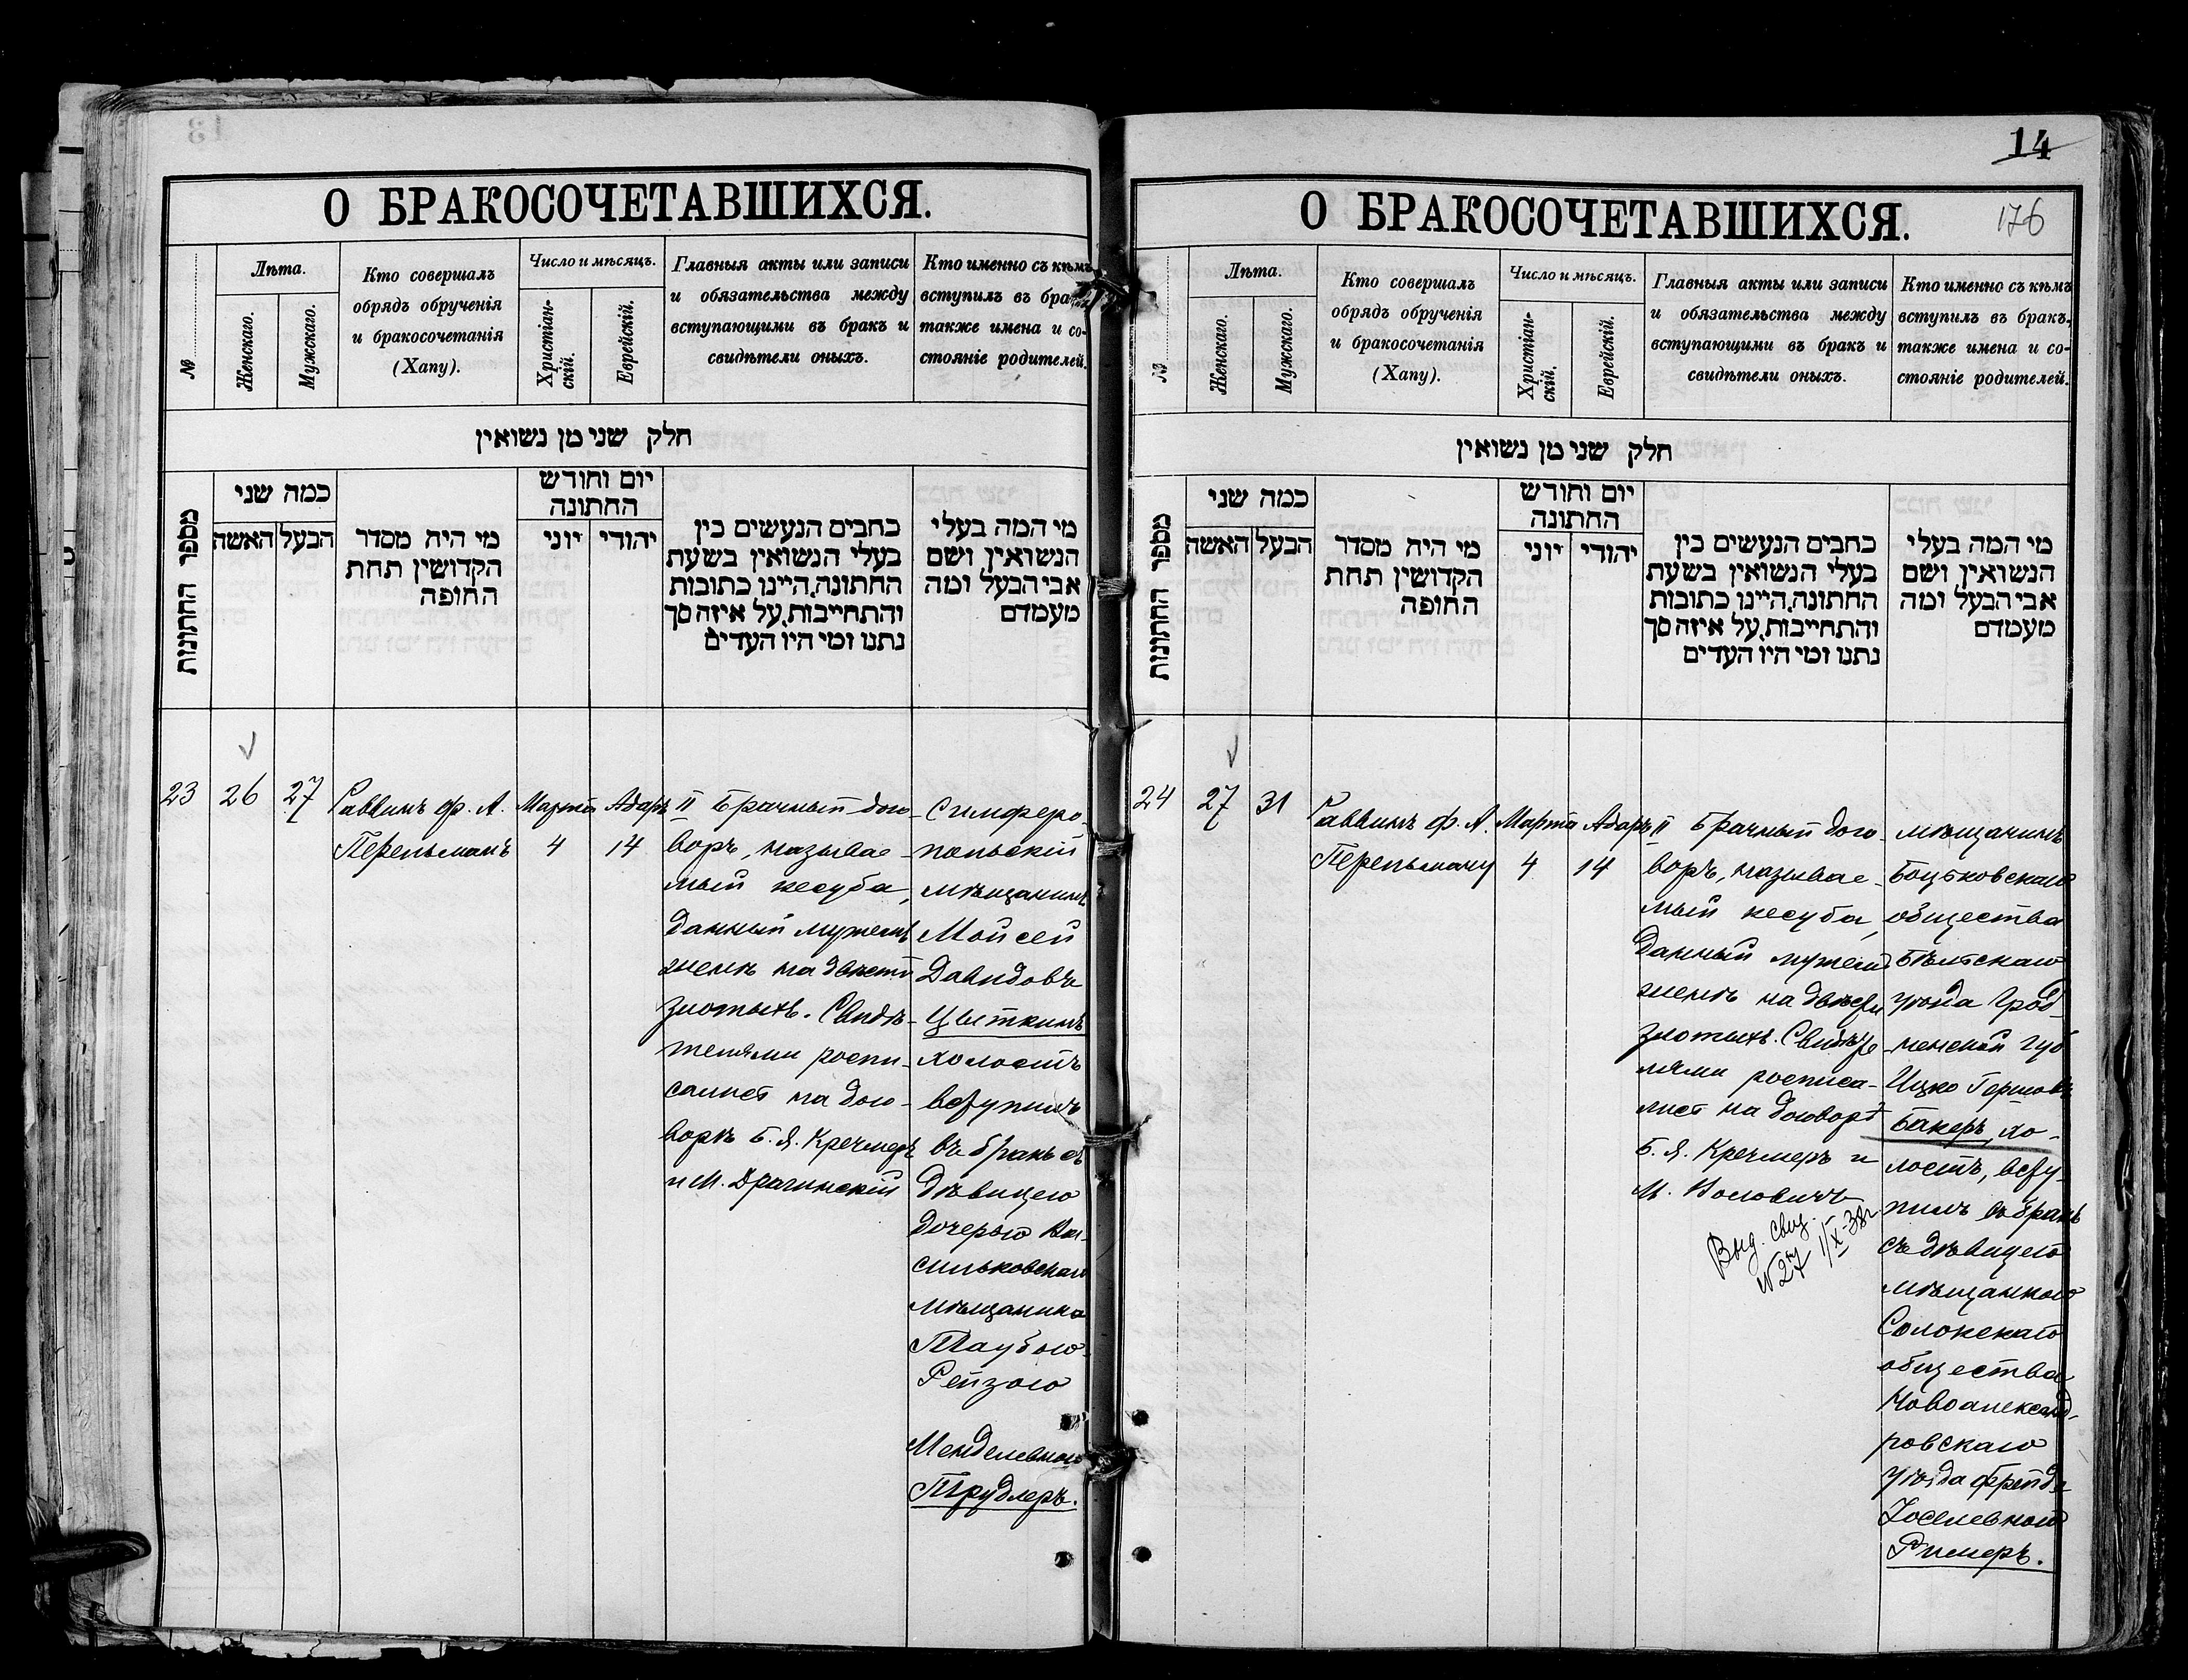 О БРАКОСОЧЕТАВШИХСЯ.
№
Лѣта.
Женскаго.
Мужскаго.
Кто совершалъ
обрядъ обрученія
и бракосочетанія
(Хапу).
Число и мѣсяцъ.
Христіан-
скій.
Еврейскій.
Главныя акты или записи
и обязательства между
вступающими въ бракъ и
свидѣтели оныхъ.
Кто именно съ кѣмъ
вступилъ въ бракъ,
также имена и со-
стояніе родителей.
חלק שני מן נשואין
מספר החתונות
כמה שני
האשה
הבעל
מי היה מסדר
הקדושין תחת
החופה
יום וחודש
החתונה
יוני
יהודי
כתבים הנעשים בין
בעלי הנשואין בשעת
החתונה, היינו כתובות
והתחייבות, על איזה סך
נתנו ומי היו העדים
מי המה בעלי
הנשואין, ושם
אבי הבעל ומה
מעמדם
23
26
27
Раввинъ ф. А.
Перельманъ
Марта
4
Адаръ II
14
Брачный дого-
воръ, называе-
мый кесуба,
данный мужемъ
женѣ на двѣсти
злотыхъ. Свидѣ-
телями роспи-
сались на дого-
ворѣ Б. Я. Кречмеръ
и М. Драгинскій
Симферо-
польскій
мѣщанинъ
Мойсей
Давидовъ
Цыткинъ
холостъ
вступилъ
въ бракъ съ
дѣвицею
дочерью Ва-
сильковскаго
мѣщанина
Таубою-
Рейзою
Менделевною
Трудлеръ.
14
О БРАКОСОЧЕТАВШИХСЯ.
176
№
Лѣта.
Женскаго.
Мужскаго.
Кто совершалъ
обрядъ обрученія
и бракосочетанія
(Хапу).
Число и мѣсяцъ.
Христіан-
скій.
Еврейскій.
Главныя акты или записи
и обязательства между
вступающими въ бракъ и
свидѣтели оныхъ.
Кто именно съ кѣмъ
вступилъ въ бракъ,
также имена и со-
стояніе родителей.
חלק שני מן נשואין
מספר החתונות
כמה שני
האשה
הבעל
מי היה מסדר
הקדושין תחת
החופה
יום וחודש
החתונה
יוני
יהודי
כתבים הנעשים בין
בעלי הנשואין בשעת
החתונה, היינו כתובות
והתחייבות, על איזה סך
נתנו ומי היו העדים
מי המה בעלי
הנשואין, ושם
אבי הבעל ומה
מעמדם
24
27
31
Раввинъ ф. А.
Перельману
Марта
4
Адаръ II
14
Брачный дого-
воръ, называе-
мый кесуба,
данный мужемъ
женѣ на двѣсти
злотыхъ. Свидѣте-
лями росписа-
лись на договорѣ
Б. Я. Кречмеръ и
М. Воловичъ
Выд. свид.
№ 27 1/X-38г.
мѣщанинъ
Боцьковскаго
общества
Бѣльскаго
уѣзда Грод-
ненской губ
Ицко Гершовъ
Бакеръ, хо-
лостъ, всту-
пилъ въ бракъ
съ дѣвицею
мѣщанкою
Солокскаго
общества
Новоалександ-
ровскаго
уѣзда Фрейде
Іоселевною
Римеръ.